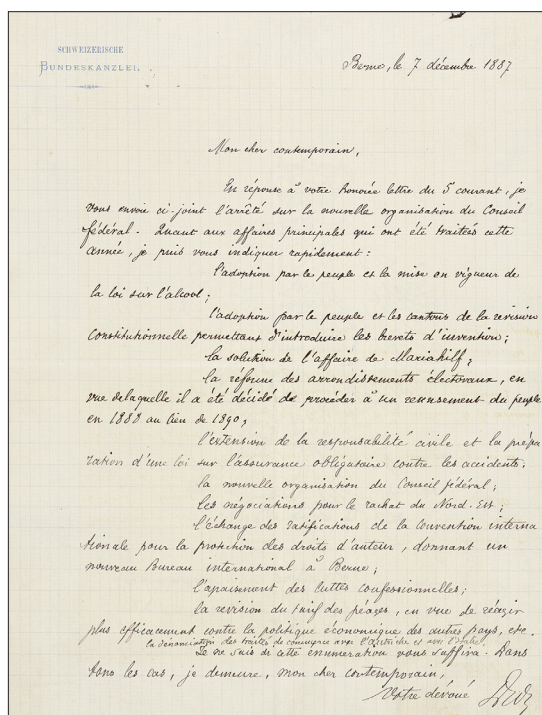 SCHWEIZERISCHE
BUNDESKANZLEI.
Berne, le 7 décembre 1887
Mon cher contemporain,
En réponse à votre honorée lettre du 5 courant, je
vous envoie ci-joint l'arrêté sur la nouvelle organisation du Conseil
fédéral. Quant aux affaires principales qui ont été traitées cette
année, je puis vous indiquer rapidement :
l'adoption par le peuple et la mise en vigueur de
la loi sur l'alcool ;
l'adoption par le peuple et les cantons de la revision
constitutionnelle permettant d'introduire les brevets d'invention ;
la solution de l'affaire de Mariahilf ;
la réforme des arrondissements électoraux, en
vue de laquelle il a été décidé de procéder à un recensement du peuple
en 1888 au lieu de 1890,
l'extension de la responsabilité civile et la prépa
ration d'une loi sur l'assurance obligatoire contre les accidents ;
la nouvelle organisation du Conseil fédéral ;
les négociations pour le rachat du Nord-Est ;
l'échange des ratifications de la Convention interna
tionale pour la protection des droits d'auteur, donnant un
nouveau Bureau international à Berne ;
l'apaisement des luttes confessionnelles ;
la revision du tarif des péages, en vue de réagir
plus efficacement contre la politique économique des autres pays, etc.
la dénonciation des traités de commerce avec l'Autriche et avec l'Italie.
Je ne sais si cette enumération vous suffira. Dans
tous les cas, je demeure, mon cher contemporain,
Votre dévoué